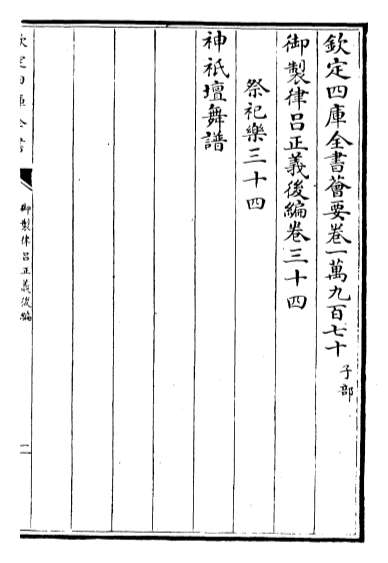 欽定四庫全書薈要卷一萬九百七十子部
御製律呂正義後編卷三十四
祭祀樂三十四
神祇壇舞譜
欽定四庫全書
御製律呂正義後編
一